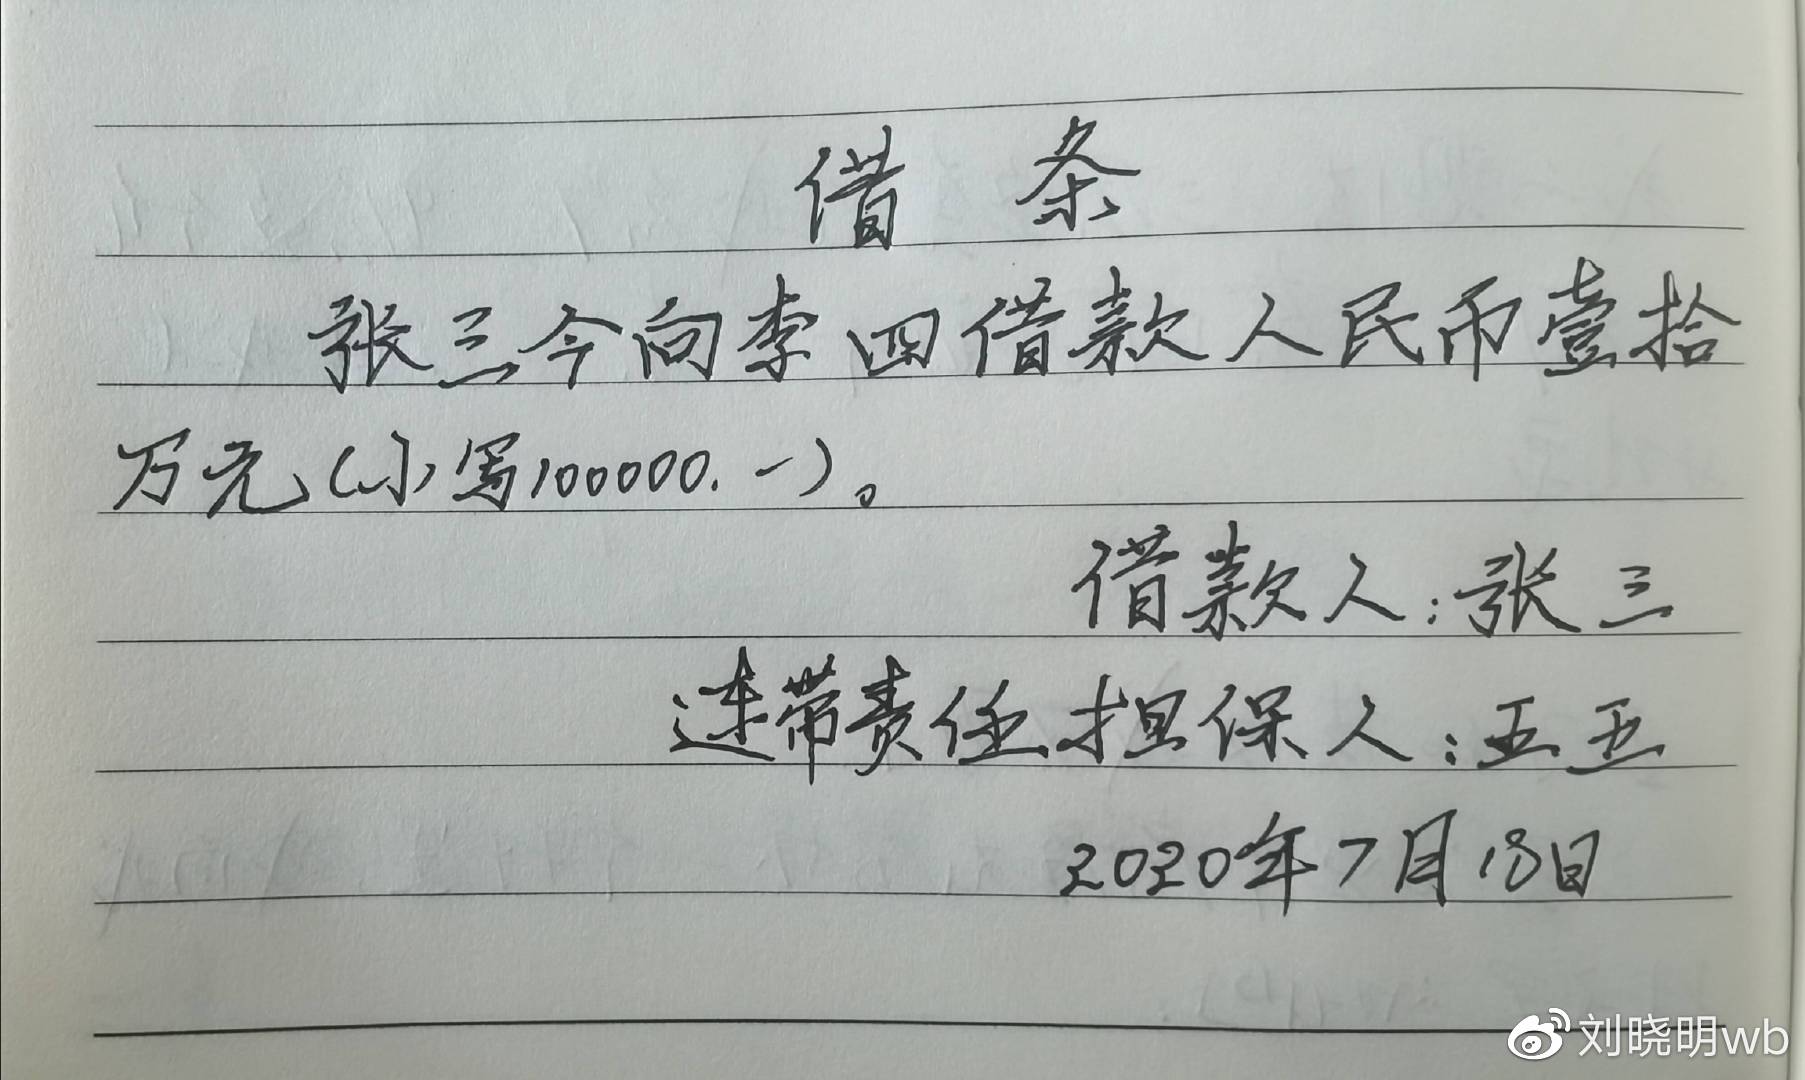 借条
张三今向李四借款人民币壹拾
万元(小写100000.一)。
借款人:张三
连带责任担保人:王五
2020年7月18日
刘晓明wb